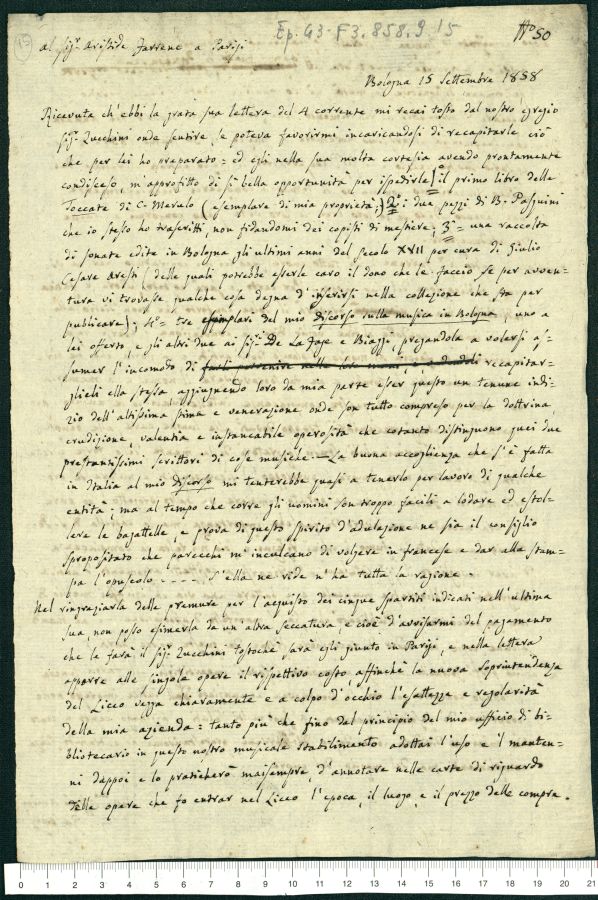 15
Ep. G3-F3.858.9 15
N.º 50
Al Sig.r Aristide Farrenc a Parigi
Bologna 15 Settembre 1858
Ricevuta ch'ebbi la grata sua lettera del 4 corrente mi recai tosto dal nostro egregio
Sig.r Zucchini onde sentire se poteva favorirmi incaricandosi di recapitarle ciò
che per lei ho preparato: ed egli nella sua molta cortesia avendo prontamente
condisceso, m'approfitto di sì bella opportunità per ispedirle 1.º il primo libro delle
Toccate di C. Merulo (esemplare di mia proprietà;) 2.º i due pezzi di B. Pasquini
che io stesso ho trascritti, non fidandomi dei copisti di mestiere; 3.º una raccolta
di sonate edite in Bologna gli ultimi anni del Secolo XVII per cura di Giulio
Cesare Aresti (delle quali potrebbe esserle caro il dono che le faccio se per avven-
tura vi trovasse qualche cosa degna d'inserirsi nella collezione che sta per
publicare); 4.º tre esemplari del mio discorso sulla musica in Bologna, uno a
lei offerto, e gli altri due ai Sig.i De La Fage e Biaggi, pregandola a volersi as-
sumer l'incomodo di farli pervenire nelle loro mani, recapitar-
glieli ella stessa, aggiugnendo loro da mia parte esser questo un tenue indi-
zio dell'altissima stima e venerazione onde son tutto compreso per la dottrina,
erudizione, valentia e instancabile operosità che cotanto distinguono quei due
prestantissimi scrittori di cose musiche. — La buona accoglienza che s'è fatta
in Italia al mio discorso mi tenterebbe quasi a tenerlo per lavoro di qualche
entità: ma al tempo che corre gli uomini son troppo facili a lodare ed estol-
lere le bagattelle, e prova di questo spirito d'adulazione ne sia il consiglio
spropositato che parecchi m'inculcano di volgere in francese e dar alla stam-
pa l'opuscolo - - - - S'ella ne ride n'ha tutta la ragione.
Nel ringraziarla delle premure per l'acquisto dei cinque spartiti indicati nell'ultima
sua, non posso esimerla da un'altra seccatura, e cioè d'avvisarmi del pagamento
che le farà il Sig.r Zucchini tostochè sarà egli giunto in Parigi, e nella lettera
apporre alle singole opere il rispettivo costo affinchè la nuova Soprintendenza
del Liceo vegga chiaramente e a colpo d'occhio l'esattezza e regolarità
della mia azienda: tanto più che fino dal principio del mio ufficio di bi-
bliotecario in questo nostro musicale stabilimento adottai l'uso e 'l manten-
ni dappoi e lo praticherò maisempre, d'annotare nelle carte di riguardo
delle opere che fo entrar nel Liceo l'epoca, il luogo, e il prezzo delle compre.
0 1 2 3 4 5 6 7 8 9 10 11 12 13 14 15 16 17 18 19 20 21